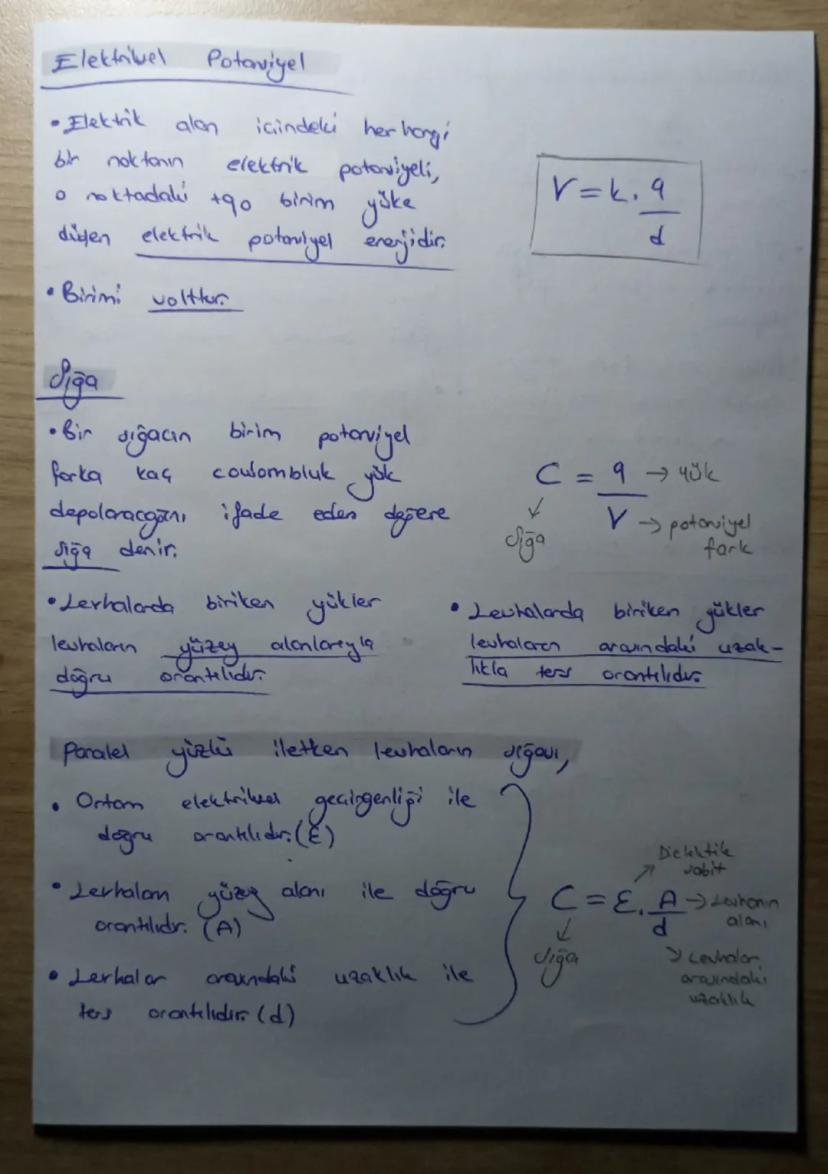 Elektriksel Potansiyel
• Elektrik alan içindeki herhangi
bir noktanın elektrik potansiyeli,
o noktadaki +q0 birim yüke
düşen elektrik potansiyel enerjidir.
V = k. q/d
• Birimi volttur.
Sığa
• Bir sığacın birim potansiyel
farka kaç coulombluk yük
depolaracğını ifade eden değere
sığa denir.
C = q/V
→ yük
→ potansiyel
fark
sığa
• Levhalarda biriken yükler
levhaların yüzey alanlarıyla
doğru orantılıdır.
• Levhalarda biriken yükler
levhaların arasındaki uzak-
lıkla ters orantılıdır.
Paralel yüzlü iletken levhaların sığası,
• Ortam elektriksel geçirgenliği ile
doğru orantılıdır. (E)
• Levhaların yüzey alanı ile doğru
orantılıdır. (A)
• Levhalar arasındaki uzaklık ile
ters orantılıdır. (d)
Dielektik
sabit
C = ε. A/d
→ Levhanın
alanı
sığa
→ Levhalar
arasındaki
uzaklık